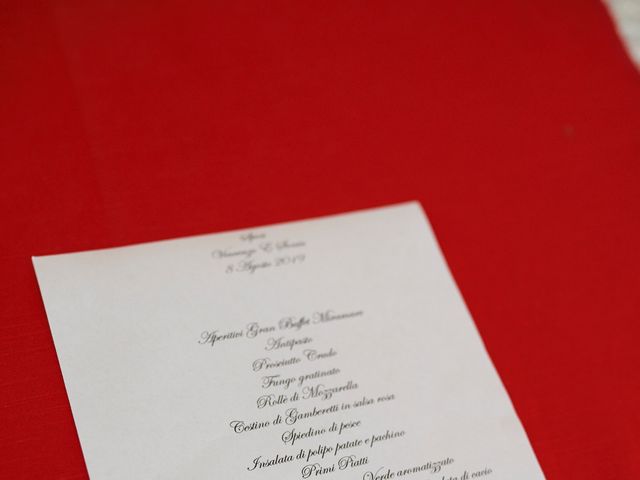 Sposi
Vincenzo E Sonia
8 Agosto 2019
Aperitivi Gran Buffet Miramare
Antipasto
Prosciutto Crudo
Fungo gratinato
Rollè di Mozzarella
Cestino di Gamberetti in salsa rosa
Spiedino di pesce
Insalata di polipo patate e pachino
Primi Piatti
Verde aromatizzato
di cacio